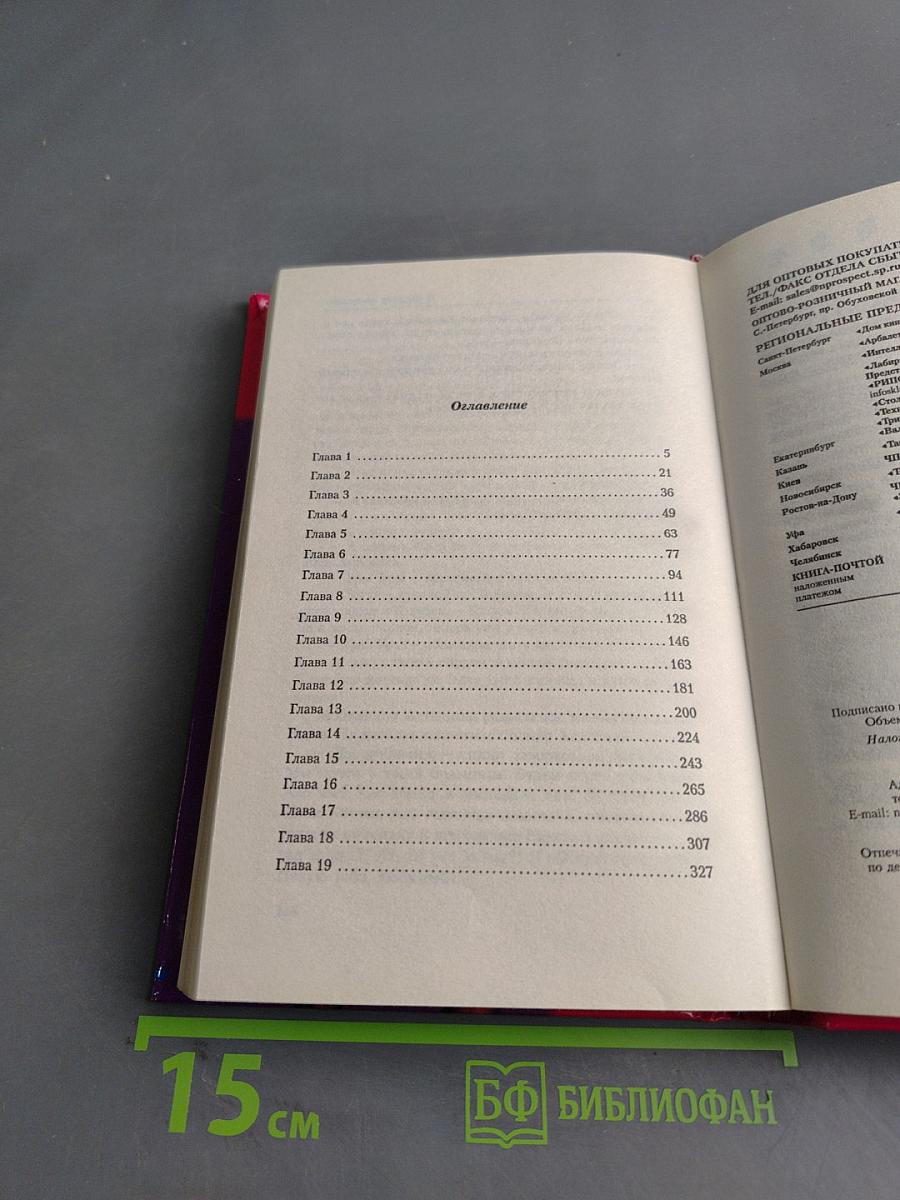 Оглавление
Глава 1 ........ 5
Глава 2 ........ 21
Глава 3 ........ 36
Глава 4 ........ 49
Глава 5 ........ 63
Глава 6 ........ 77
Глава 7 ........ 94
Глава 8 ........ 111
Глава 9 ........ 128
Глава 10 ........ 146
Глава 11 ........ 163
Глава 12 ........ 181
Глава 13 ........ 200
Глава 14 ........ 224
Глава 15 ........ 243
Глава 16 ........ 265
Глава 17 ........ 286
Глава 18 ........ 307
Глава 19 ........ 327
ДЛЯ ОПТОВЫХ
ТЕЛ./ФАКС ОТДЕЛА
E-mail: sales@nprospect.sp.ru
ОПТОВО-РОЗНИЧНЫЙ
С.-Петербург, пр. Обуховской
РЕГИОНАЛЬНЫЕ
Санкт-Петербург «Дом
Москва
infoskl
Екатеринбург
Казань
Киев
Новосибирск
Ростов-на-Дону
Уфа
Хабаровск
Челябинск
КНИГА-ПОЧТОЙ
наложенным
платежом
Подписано
E-mail:
по
15 см
БФ БИБЛИОФАН